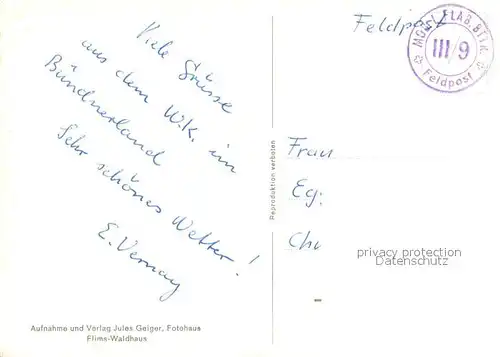 Viele Grüsse
aus dem W.K. im
Bündnerland
Sehr schönes Wetter!
E. Vernay
Aufnahme und Verlag Jules Geiger, Fotohaus
Flims-Waldhaus
Reproduktion verboten
Feldpost
MOB. L. FLAB. BTTR.
III/9
Feldpost
Frau
Eg:
privacy protection
Datenschutz